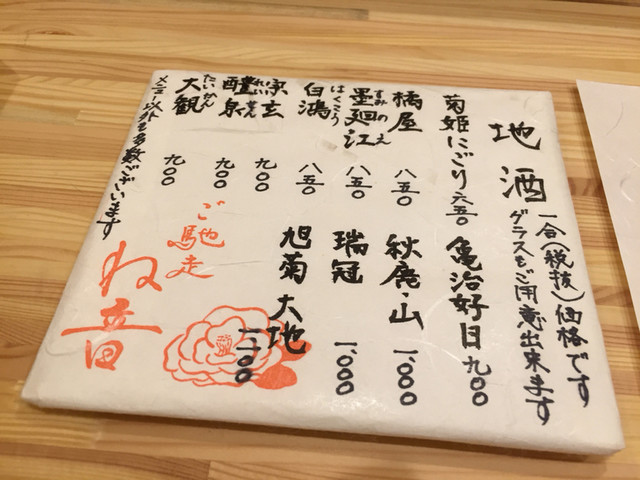 地酒
一合(税抜)価格です
グラスもご用意出来ます
菊姫にごり 六五〇
亀治好日 九〇〇
橘屋 八五〇
秋鹿・山 一、〇〇〇
すみのえ
墨廼江 八五〇
瑞冠 一、〇〇〇
はくこう
白鴻 八五〇
旭菊 大地 一、一〇〇
宗玄 九〇〇
れいせん
醴泉 九〇〇
たいかん
大観 九〇〇
メニュー以外も多数ございます
ご馳走
ね音